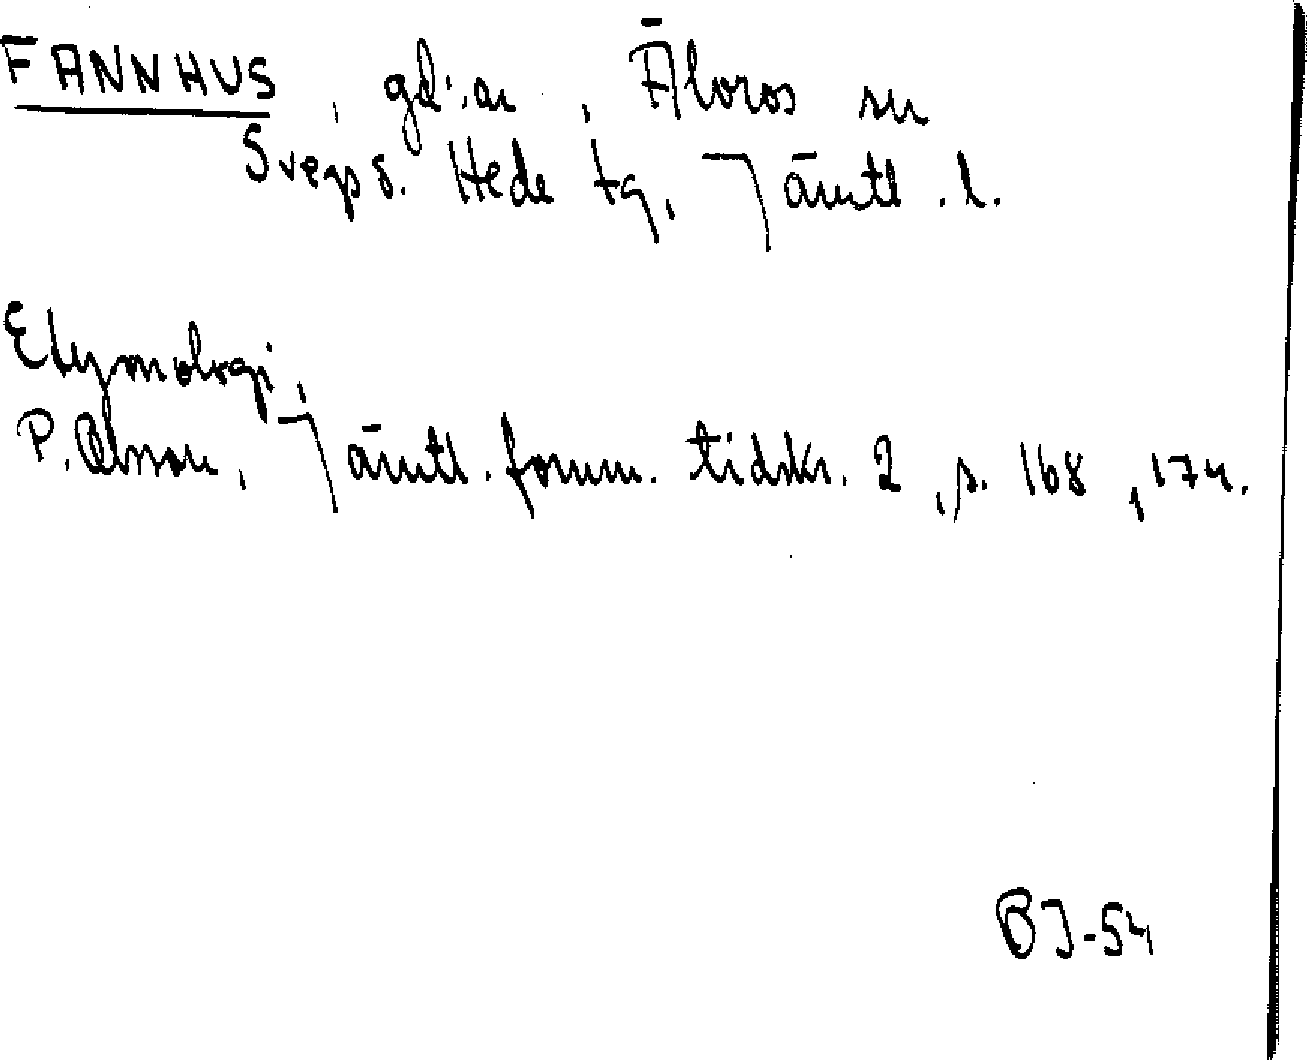 FANNHUS, gd:ar, Älvros sn
Svegs s. Hede tg, Jämtl. l.
Etymologi,
P. Olsson, Jämtl. fornm. tidskr. 2, s. 168, 174.
BJ-54